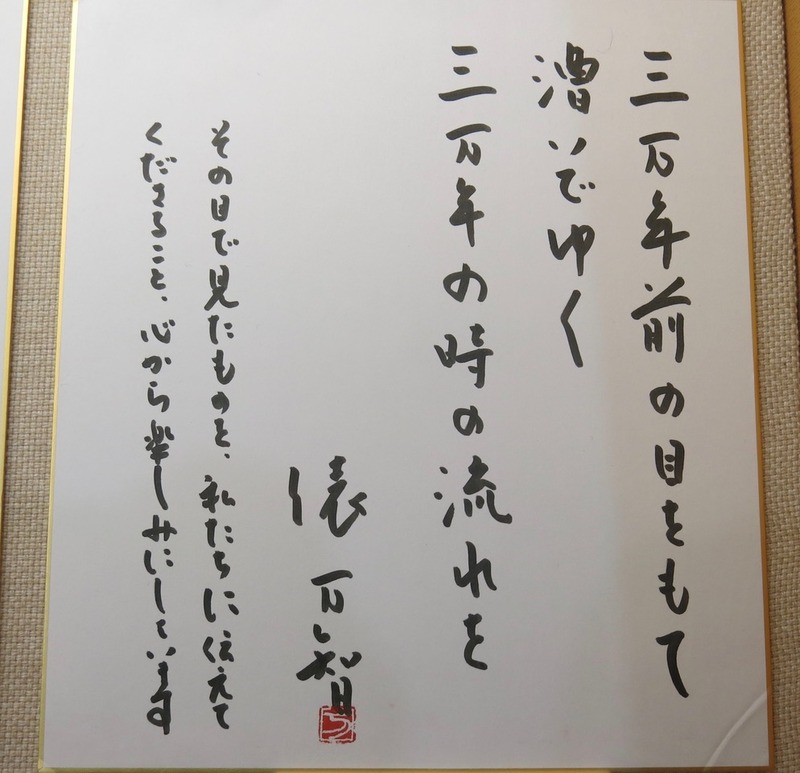 三万年前の目をもて
漕いでゆく
三万年の時の流れを
俵万智
その目で見たものを、私たちに伝えて
くださること、心から楽しみにしています